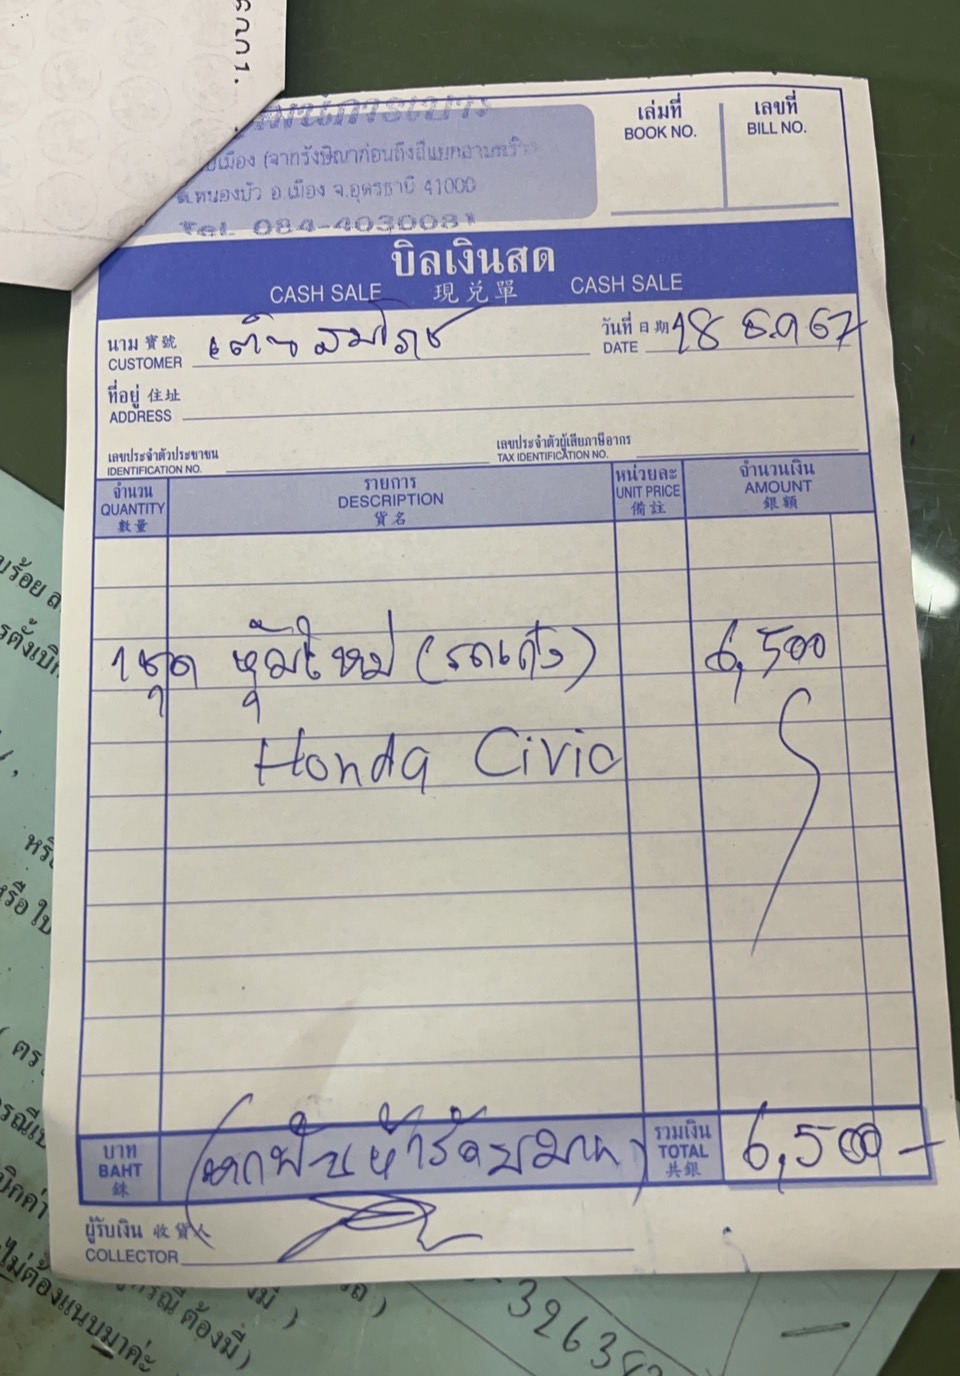 เล่มที่
BOOK NO.
เลขที่
BILL NO.
(จากรังษิณาก่อนถึงสี่แยก
ต.หนองบัว อ.เมือง จ.อุดรธานี 41000
Tel. 084-403008
บิลเงินสด
CASH SALE 現兌單 CASH SALE
นาม 寶號
CUSTOMER
วันที่ 日期 18 ธ.ค 67
DATE
ที่อยู่ 住址
ADDRESS
เลขประจำตัวประชาชน
IDENTIFICATION NO.
เลขประจำตัวผู้เสียภาษีอากร
TAX IDENTIFICATION NO.
จำนวน
QUANTITY
數量
รายการ
DESCRIPTION
貨名
หน่วยละ
UNIT PRICE
備註
จำนวนเงิน
AMOUNT
銀額
1 ชุด หุ้มใหม่ (รถเก๋ง) 6,500
Honda Civic
บาท
BAHT
銖
(หกพันห้าร้อยบาท)
รวมเงิน
TOTAL
共銀
6,500-
ผู้รับเงิน 收貨人
COLLECTOR
หรือ ใบ
ไม่ต้องแนบมาค่ะ
กรณี ต้องมี)